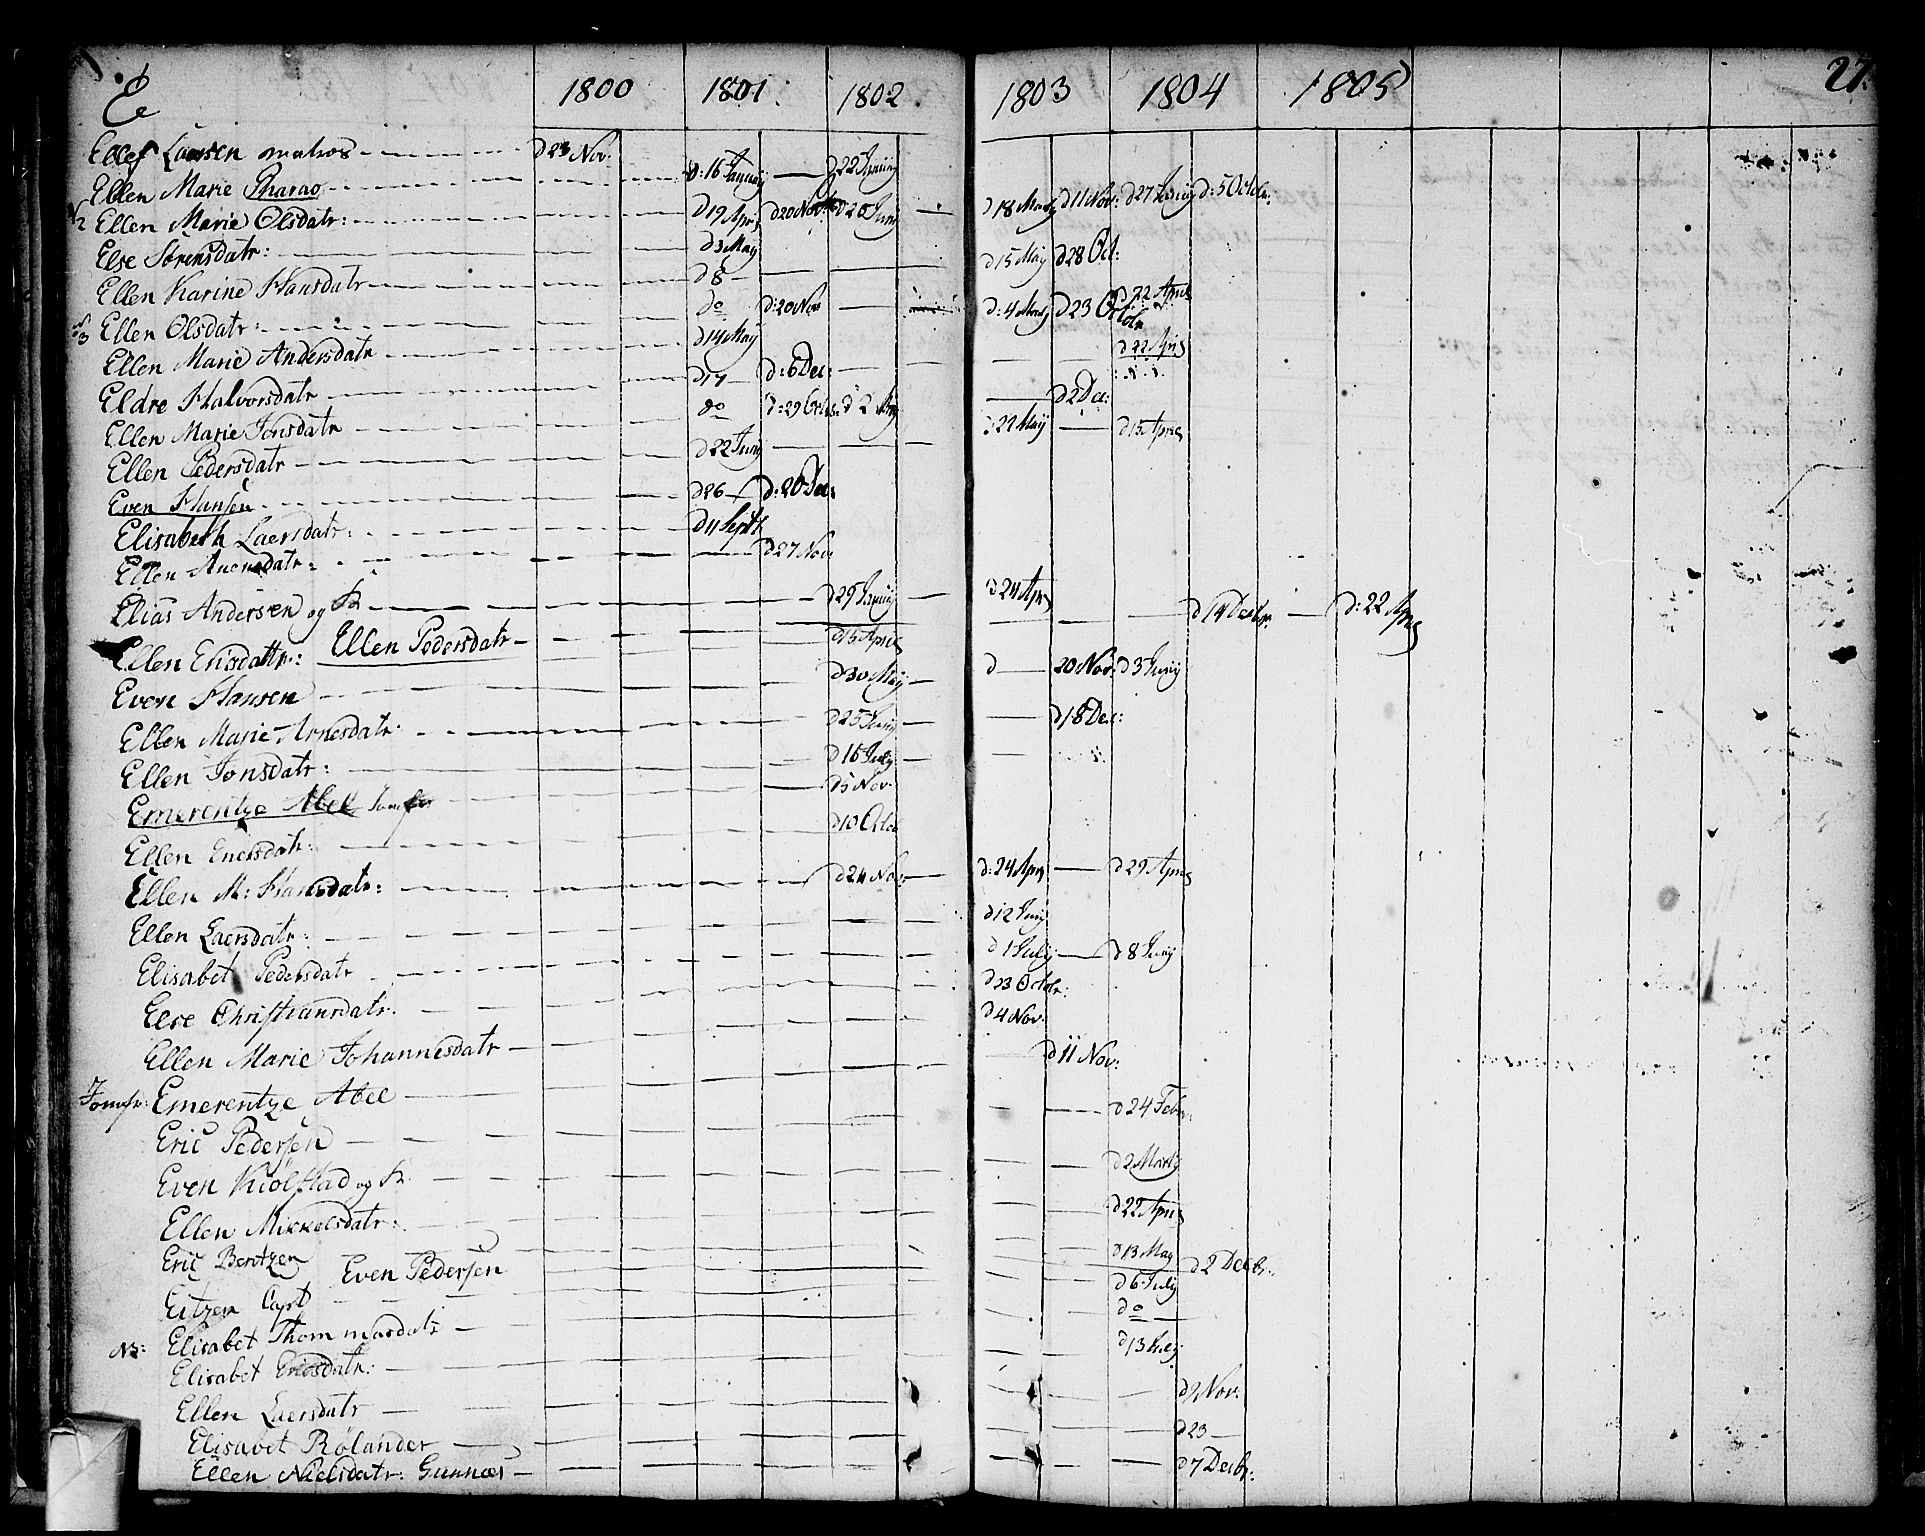 E 1800 1801 1802 1803 1804 1805 27.
Ellef Larsen matros d 23 Nov:
Ellen Marie Pharao d: 16 Januarij d 22 Junij
N 2 Ellen Marie Olsdatr: d 19 Apr d 20 Nov: d 20 Juni d 18 Marty d 11 Nov: d 27 Junij d: 5 Octbr:
Else Sørensdatr: d 3 Maij
Ellen Karine Hansdatr d 8 d 15 Maij d 28 Oct:
N 3 Ellen Olsdatr: do d: 20 Nov d: 4 Marty d 23 Octobr d 22 April
Ellen Marie Andersdatr d 14 Maij d 22 April
Eldre Halvorsdatr d 17 d: 6 Dec:
Ellen Marie Jonsdatr do d: 29 Octbr: d 2 d 2 Dec:
Ellen Pedersdatr d 22 Junij d 22 Maij d 15 April
Even Hansen d 26 d: 20 Dec:
Elisabeth Laersdatr: d 11 Septb
Ellen d 27 Nov
Elias Andersen og Fr d 29 Junij d: 24 Apr
Ellen Ericsdattr: Ellen Pedersdatr d 15 April d 14 Decbr. d: 22 April
Even Hansen d 30 Maij d 20 Nov: d 3 Junij
Ellen Marie Arnesdatr: d 25 Junij d 18 Dec:
Ellen Jonsdatr: d 16 July
Emerentze Abel Jomfr d 5 Nov.
Ellen Enersdatr: d 10 Octob
Ellen M: Hansdatr: d 24 Nov: d: 24 Apr d 29 April
Ellen Laersdatr: d 12 Junij
Elisabet Pedersdatr d 1 Julij d 8 Junij
Else Christiansdatr. d 23 Octobr:
Ellen Marie Johannesdatr d 4 Nov.
Jomfr: Emerentze Abel d 11 Nov:
Eric Pedersen d 24 Febr.
Even Kiølstad og Fr. d 2 Marty
Ellen Mikkelsdatr: d 22 April
Eric Bentzen Even Pedersen d 13 Maij d 2 Decbr.
Eitzen Capt d 6 July
N3: Elisabet Thommasdatr do
Elisabet Ericsdatr: d 13 July
Ellen Laersdatr d 2 Nov.
Elisabet Rølander d 23
Ellen Nielsdatr: Gunnæs d 7 Decbr: